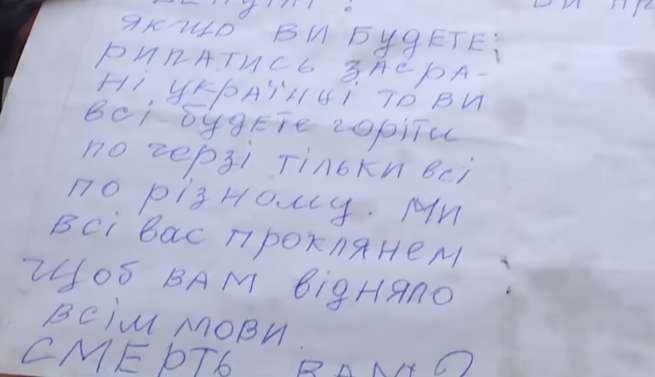 ЯКЩО ВИ БУДЕТЕ
РИПАТИСЬ ЗАСРА-
НІ УКРАЇНЦІ ТО ВИ
ВСІ БУДЕТЕ горіти
по черзі тільки всі
по різному. Ми
всі вас проклянем
Щоб ВАМ відняло
всім мови.
СМЕРТЬ ВАМ